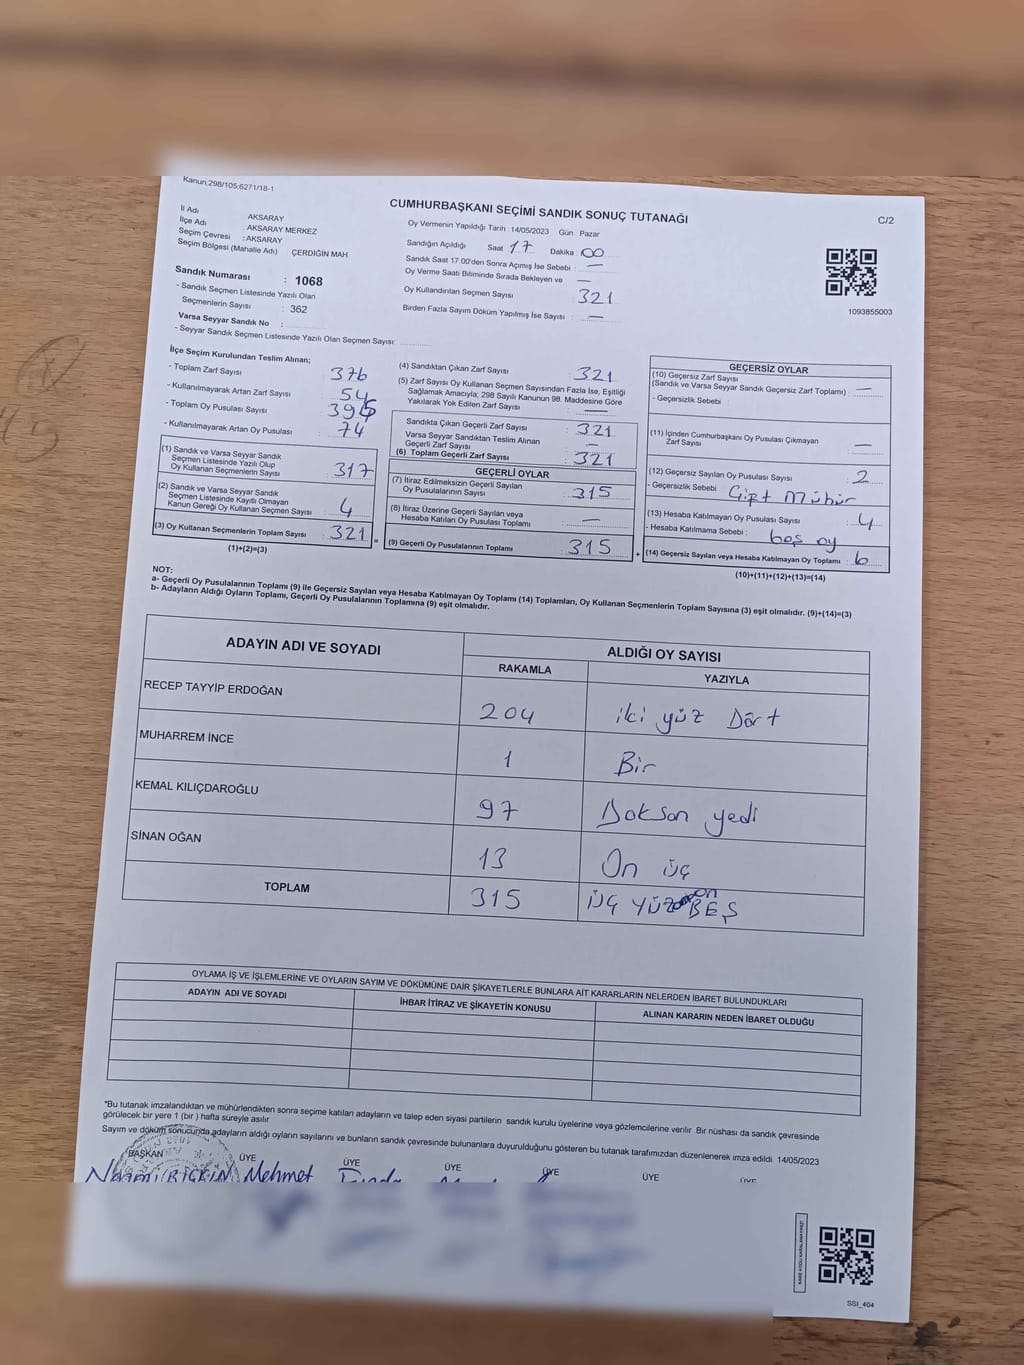 Kanun;298/105;6271/18-1
C/2
CUMHURBAŞKANI SEÇİMİ SANDIK SONUÇ TUTANAĞI
İl Adı AKSARAY
İlçe Adı AKSARAY MERKEZ
Seçim Çevresi : AKSARAY
Seçim Bölgesi (Mahalle Adı) ÇERDİĞİN MAH
Sandık Numarası : 1068
- Sandık Seçmen Listesinde Yazılı Olan
Seçmenlerin Sayısı : 362
Varsa Seyyar Sandık No :
- Seyyar Sandık Seçmen Listesinde Yazılı Olan Seçmen Sayısı:
Oy Vermenin Yapıldığı Tarih 14/05/2023 Gün Pazar
Sandığın Açıldığı Saat 17 Dakika 00
Sandık Saat 17 00'den Sonra Açımış İse Sebebi : —
Oy Verme Saati Bitiminde Sırada Bekleyen ve
Oy Kullandırılan Seçmen Sayısı : 321
Birden Fazla Sayım Döküm Yapılmış İse Sayısı : —
1093855003
İlçe Seçim Kurulundan Teslim Alınan;
- Toplam Zarf Sayısı : 376
- Kullanılmayarak Artan Zarf Sayısı : 54
- Toplam Oy Pusulası Sayısı : 395
- Kullanılmayarak Artan Oy Pusulası : 74
(1) Sandık ve Varsa Seyyar Sandık
Seçmen Listesinde Yazılı Olup
Oy Kullanan Seçmenlerin Sayısı : 317
(2) Sandık ve Varsa Seyyar Sandık
Seçmen Listesinde Kayıtlı Olmayan
Kanun Gereği Oy Kullanan Seçmen Sayısı : 4
(3) Oy Kullanan Seçmenlerin Toplam Sayısı : 321
(1)+(2)=(3)
(4) Sandıktan Çıkan Zarf Sayısı : 321
(5) Zarf Sayısı Oy Kullanan Seçmen Sayısından Fazla İse, Eşitliği
Sağlamak Amacıyla; 298 Sayılı Kanunun 98. Maddesine Göre
Yakılarak Yok Edilen Zarf Sayısı : —
Sandıkta Çıkan Geçerli Zarf Sayısı : 321
Varsa Seyyar Sandıktan Teslim Alınan
Geçerli Zarf Sayısı : —
(6) Toplam Geçerli Zarf Sayısı : 321
GEÇERLİ OYLAR
(7) İtiraz Edilmeksizin Geçerli Sayılan
Oy Pusulalarının Sayısı : 315
(8) İtiraz Üzerine Geçerli Sayılan veya
Hesaba Katılan Oy Pusulası Toplamı : —
= (9) Geçerli Oy Pusulalarının Toplamı : 315
GEÇERSİZ OYLAR
(10) Geçersiz Zarf Sayısı
(Sandık ve Varsa Seyyar Sandık Geçersiz Zarf Toplamı) : —
- Geçersizlik Sebebi :
(11) İçinden Cumhurbaşkanı Oy Pusulası Çıkmayan
Zarf Sayısı : —
(12) Geçersiz Sayılan Oy Pusulası Sayısı : 2
- Geçersizlik Sebebi : Çipt Mühür
(13) Hesaba Katılmayan Oy Pusulası Sayısı : 4
- Hesaba Katılmama Sebebi : boş oy
+ (14) Geçersiz Sayılan veya Hesaba Katılmayan Oy Toplamı : 6
(10)+(11)+(12)+(13)=(14)
NOT:
a- Geçerli Oy Pusulalarının Toplamı (9) ile Geçersiz Sayılan veya Hesaba Katılmayan Oy Toplamı (14) Toplamları, Oy Kullanan Seçmenlerin Toplam Sayısına (3) eşit olmalıdır. (9)+(14)=(3)
b- Adayların Aldığı Oyların Toplamı, Geçerli Oy Pusulalarının Toplamına (9) eşit olmalıdır.
ADAYIN ADI VE SOYADI
ALDIĞI OY SAYISI
RAKAMLA YAZIYLA
RECEP TAYYİP ERDOĞAN 204 iki yüz Dört
MUHARREM İNCE 1 Bir
KEMAL KILIÇDAROĞLU 97 Doksan yedi
SİNAN OĞAN 13 On üç
TOPLAM 315 üç yüz on BEŞ
OYLAMA İŞ VE İŞLEMLERİNE VE OYLARIN SAYIM VE DÖKÜMÜNE DAİR ŞİKAYETLERLE BUNLARA AİT KARARLARIN NELERDEN İBARET BULUNDUKLARI
ADAYIN ADI VE SOYADI İHBAR İTİRAZ VE ŞİKAYETİN KONUSU ALINAN KARARIN NEDEN İBARET OLDUĞU
*Bu tutanak imzalandıktan ve mühürlendikten sonra seçime katılan adayların ve talep eden siyasi partilerin sandık kurulu üyelerine veya gözlemcilerine verilir .Bir nüshası da sandık çevresinde
görülecek bir yere 1 (bir ) hafta süreyle asılır
Sayım ve döküm sonucunda adayların aldığı oyların sayılarını ve bunların sandık çevresinde bulunanlara duyurulduğunu gösteren bu tutanak tarafımızdan düzenlenerek imza edildi. 14/05/2023
BAŞKAN ÜYE ÜYE ÜYE ÜYE ÜYE ÜYE
Mehmet
SSI_404